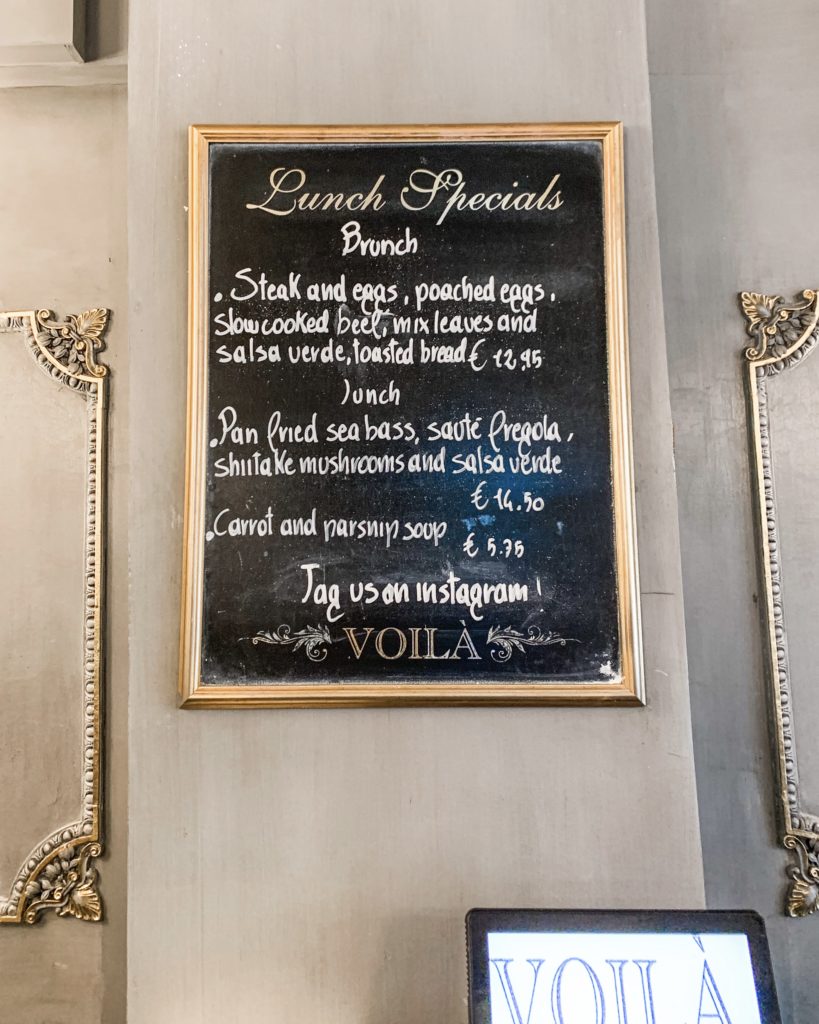 Lunch Specials
Brunch
. Steak and eggs, poached eggs,
slowcooked beef, mix leaves and
salsa verde, toasted bread € 12,95
lunch
. Pan fried sea bass, sauté fregola,
shiitake mushrooms and salsa verde
€ 14.50
. Carrot and parsnip soup € 5.75
Tag us on instagram!
VOILÀ
VOILÀ